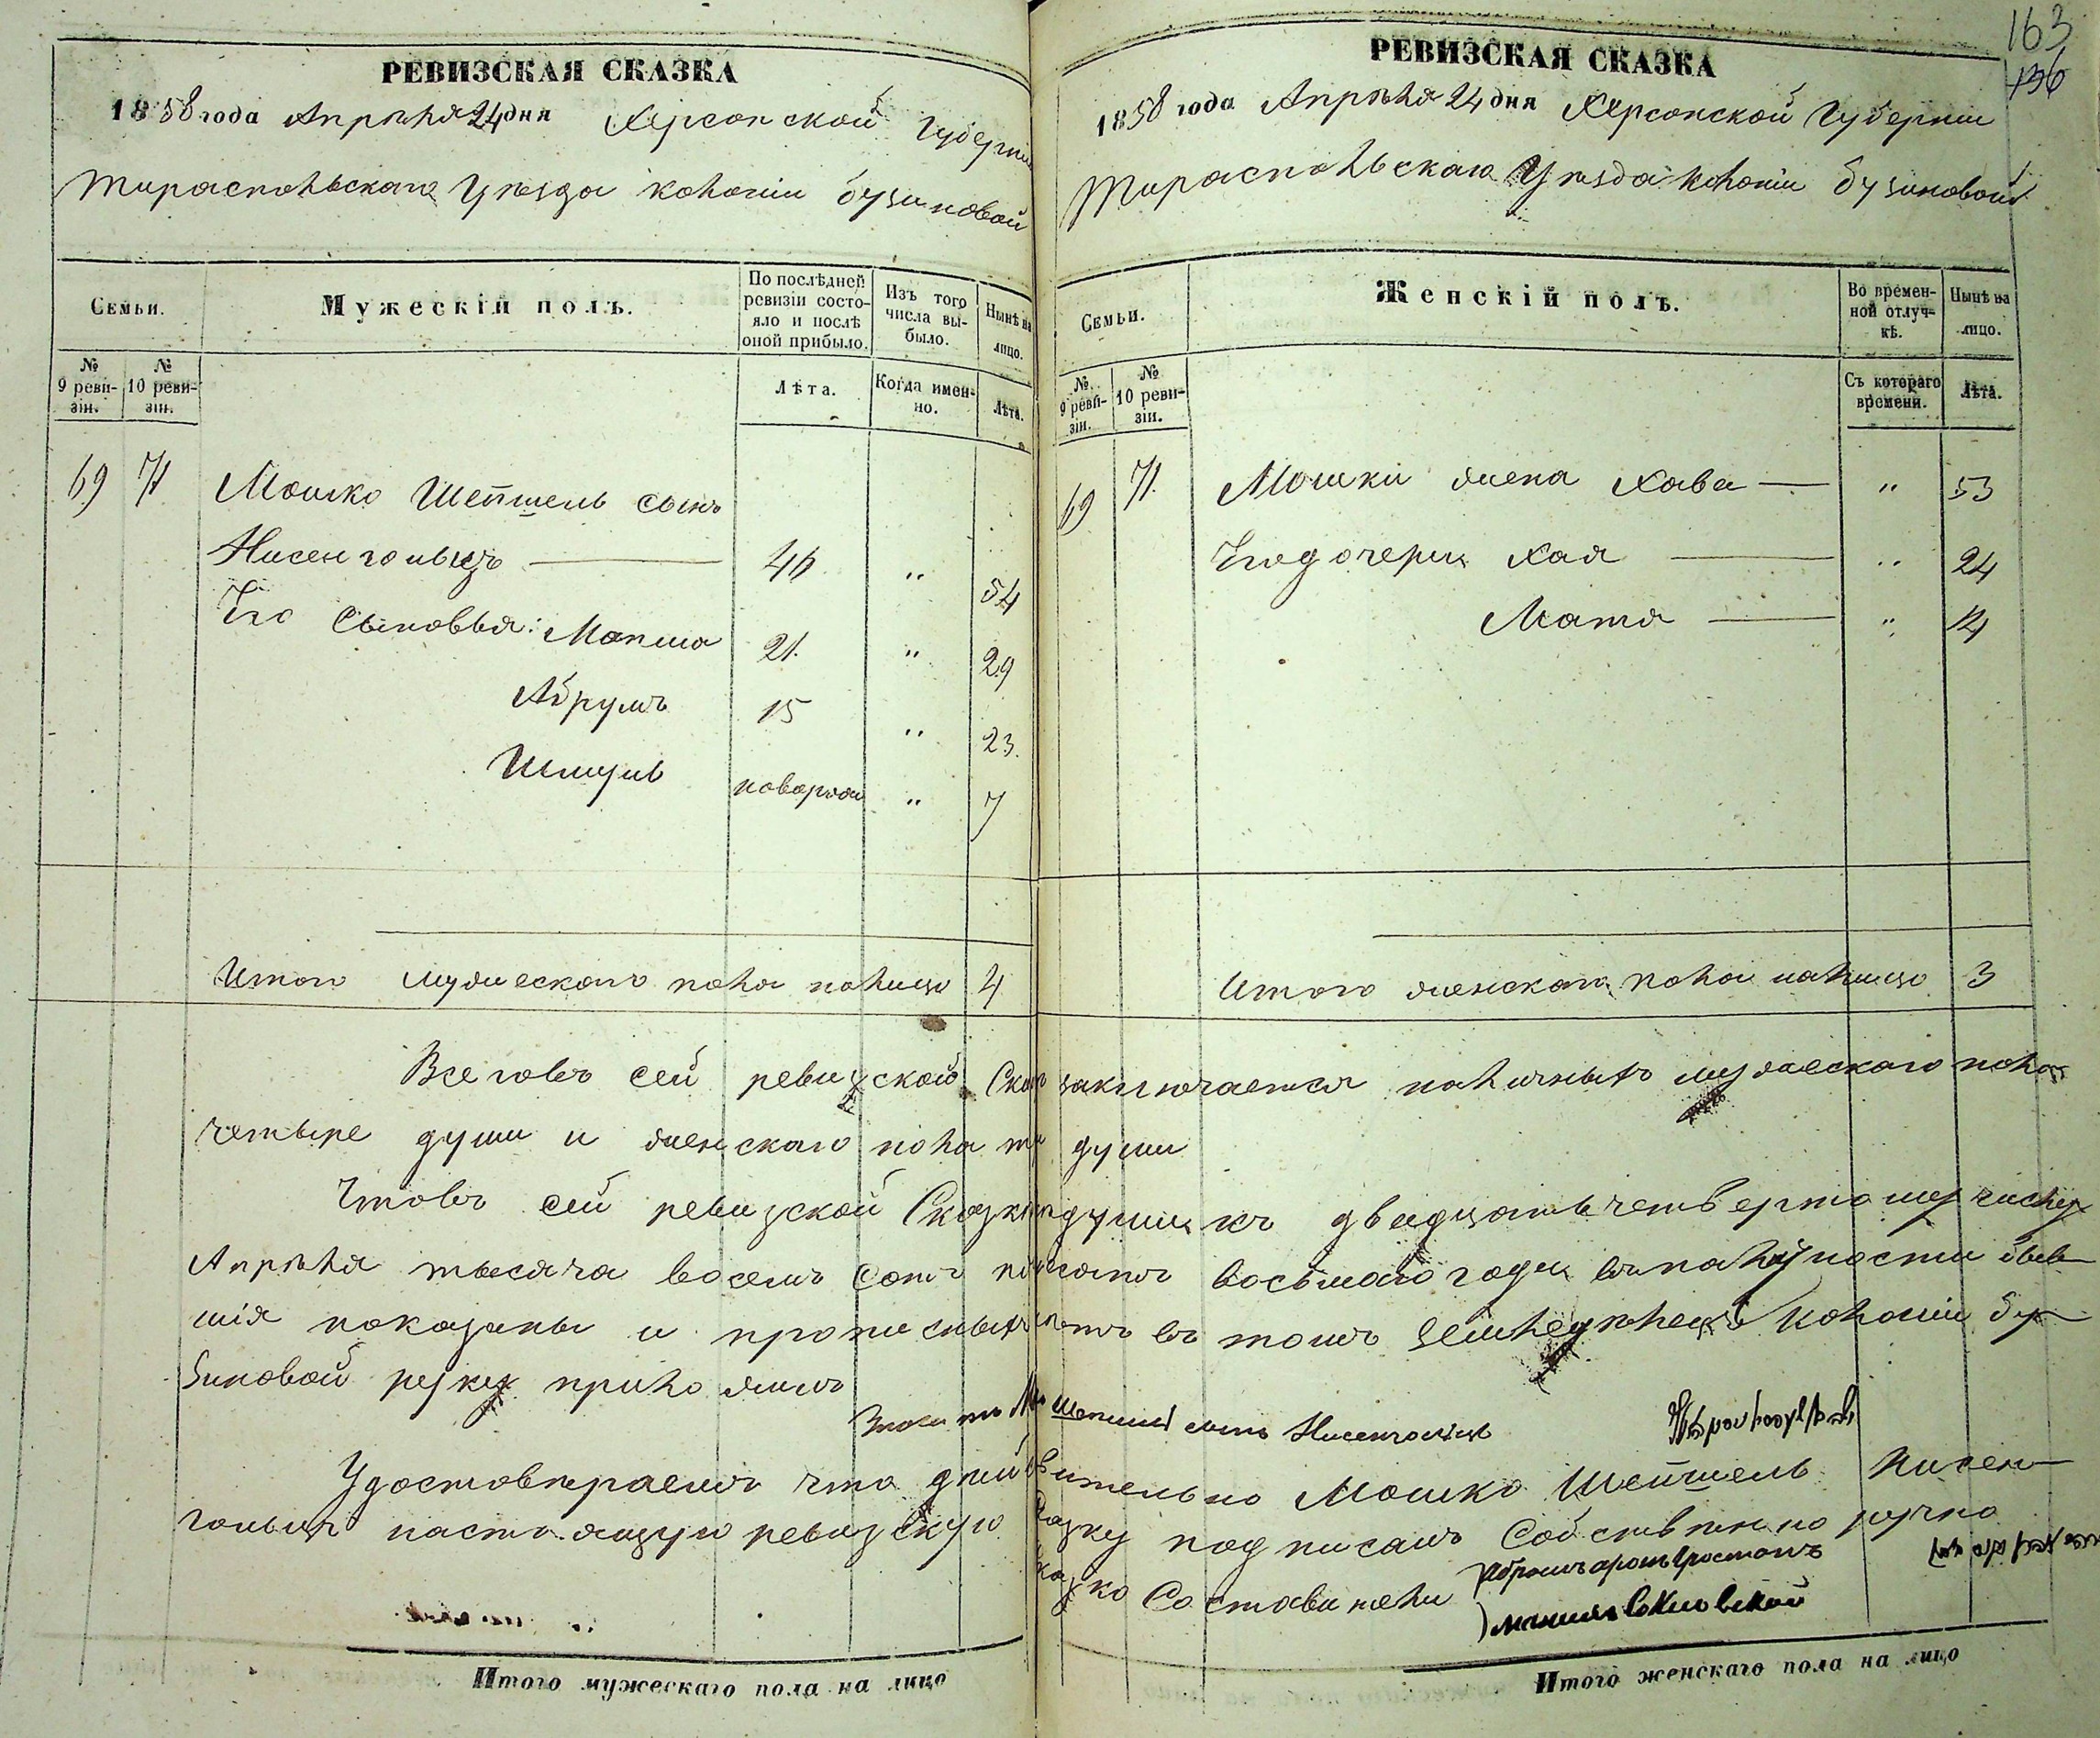 163
136
РЕВИЗСКАЯ СКАЗКА
1858 года Апрѣля 24 дня Херсонской Губерніи
Тираспольскаго Уѣзда колоніи бузиновой
Семьи.
Мужескій полъ.
По послѣдней ревизіи состояло и послѣ оной прибыло.
Изъ того числа выбыло.
Нынѣ на лицо.
№ 9 ревизіи.
№ 10 ревизіи.
Лѣта.
Когда именно.
Лѣта.
69 71 Мошко Шепшель сынъ
Нисенгольцъ 46 " 54
Его Сыновья: Мапша 21. " 29
Абрумъ 15 " 23.
Шмуль новорож " 7
Итого мужескаго пола налицо 4
РЕВИЗСКАЯ СКАЗКА
1858 года Апрѣля 24 дня Херсонской Губерніи
Тираспольскаго Уѣзда колоніи бузиновой
Семьи.
Женскій полъ.
Во временной отлучкѣ.
Нынѣ на лицо.
№ 9 ревизіи.
№ 10 ревизіи.
Съ котораго времени.
Лѣта.
69 71. Мошки жена Хава " 53
Его дочери Хая " 24
Матя " 14
Итого женскаго пола налицо 3
Всеговъ сей ревизской Ска заключается наличныхъ мужескаго пола
четыре души и женскаго пола три души
Чтовъ сей ревизской Сказки души къ двадцать четвертому числу
Апрѣля тысяча восемъ Сотъ восьмаго года въ
шія показаны и нѣтъ въ томъ колоніи бу
зиновой руку приложилъ
Шепшель сынъ Нисенгольцъ
Удостовѣраемъ что дѣйствительно Мошко Шепшель Нисен
гольцъ настоящую ревизскую Сказку подписалъ Собственно ручно
Составители
Итого мужескаго пола на лицо
Итого женскаго пола на лицо